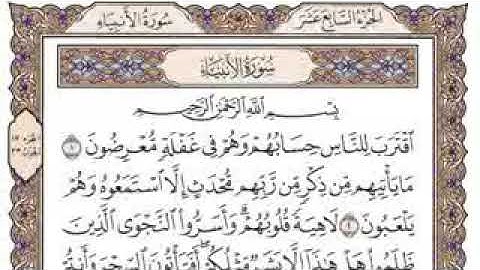 الجزء السابع عشر
سورة الأنبياء
سُورَةُ الأَنبِيَاءِ
بِسْمِ اللَّهِ الرَّحْمَٰنِ الرَّحِيمِ
اقْتَرَبَ لِلنَّاسِ حِسَابُهُمْ وَهُمْ فِي غَفْلَةٍ مُّعْرِضُونَ ١
مَا يَأْتِيهِم مِّن ذِكْرٍ مِّن رَّبِّهِم مُّحْدَثٍ إِلَّا اسْتَمَعُوهُ وَهُمْ
يَلْعَبُونَ ٢ لَاهِيَةً قُلُوبُهُمْ وَأَسَرُّوا النَّجْوَى الَّذِينَ
ظَلَمُوا هَلْ هَٰذَا إِلَّا بَشَرٌ مِّثْلُكُمْ أَفَتَأْتُونَ السِّحْرَ وَأَنتُمْ